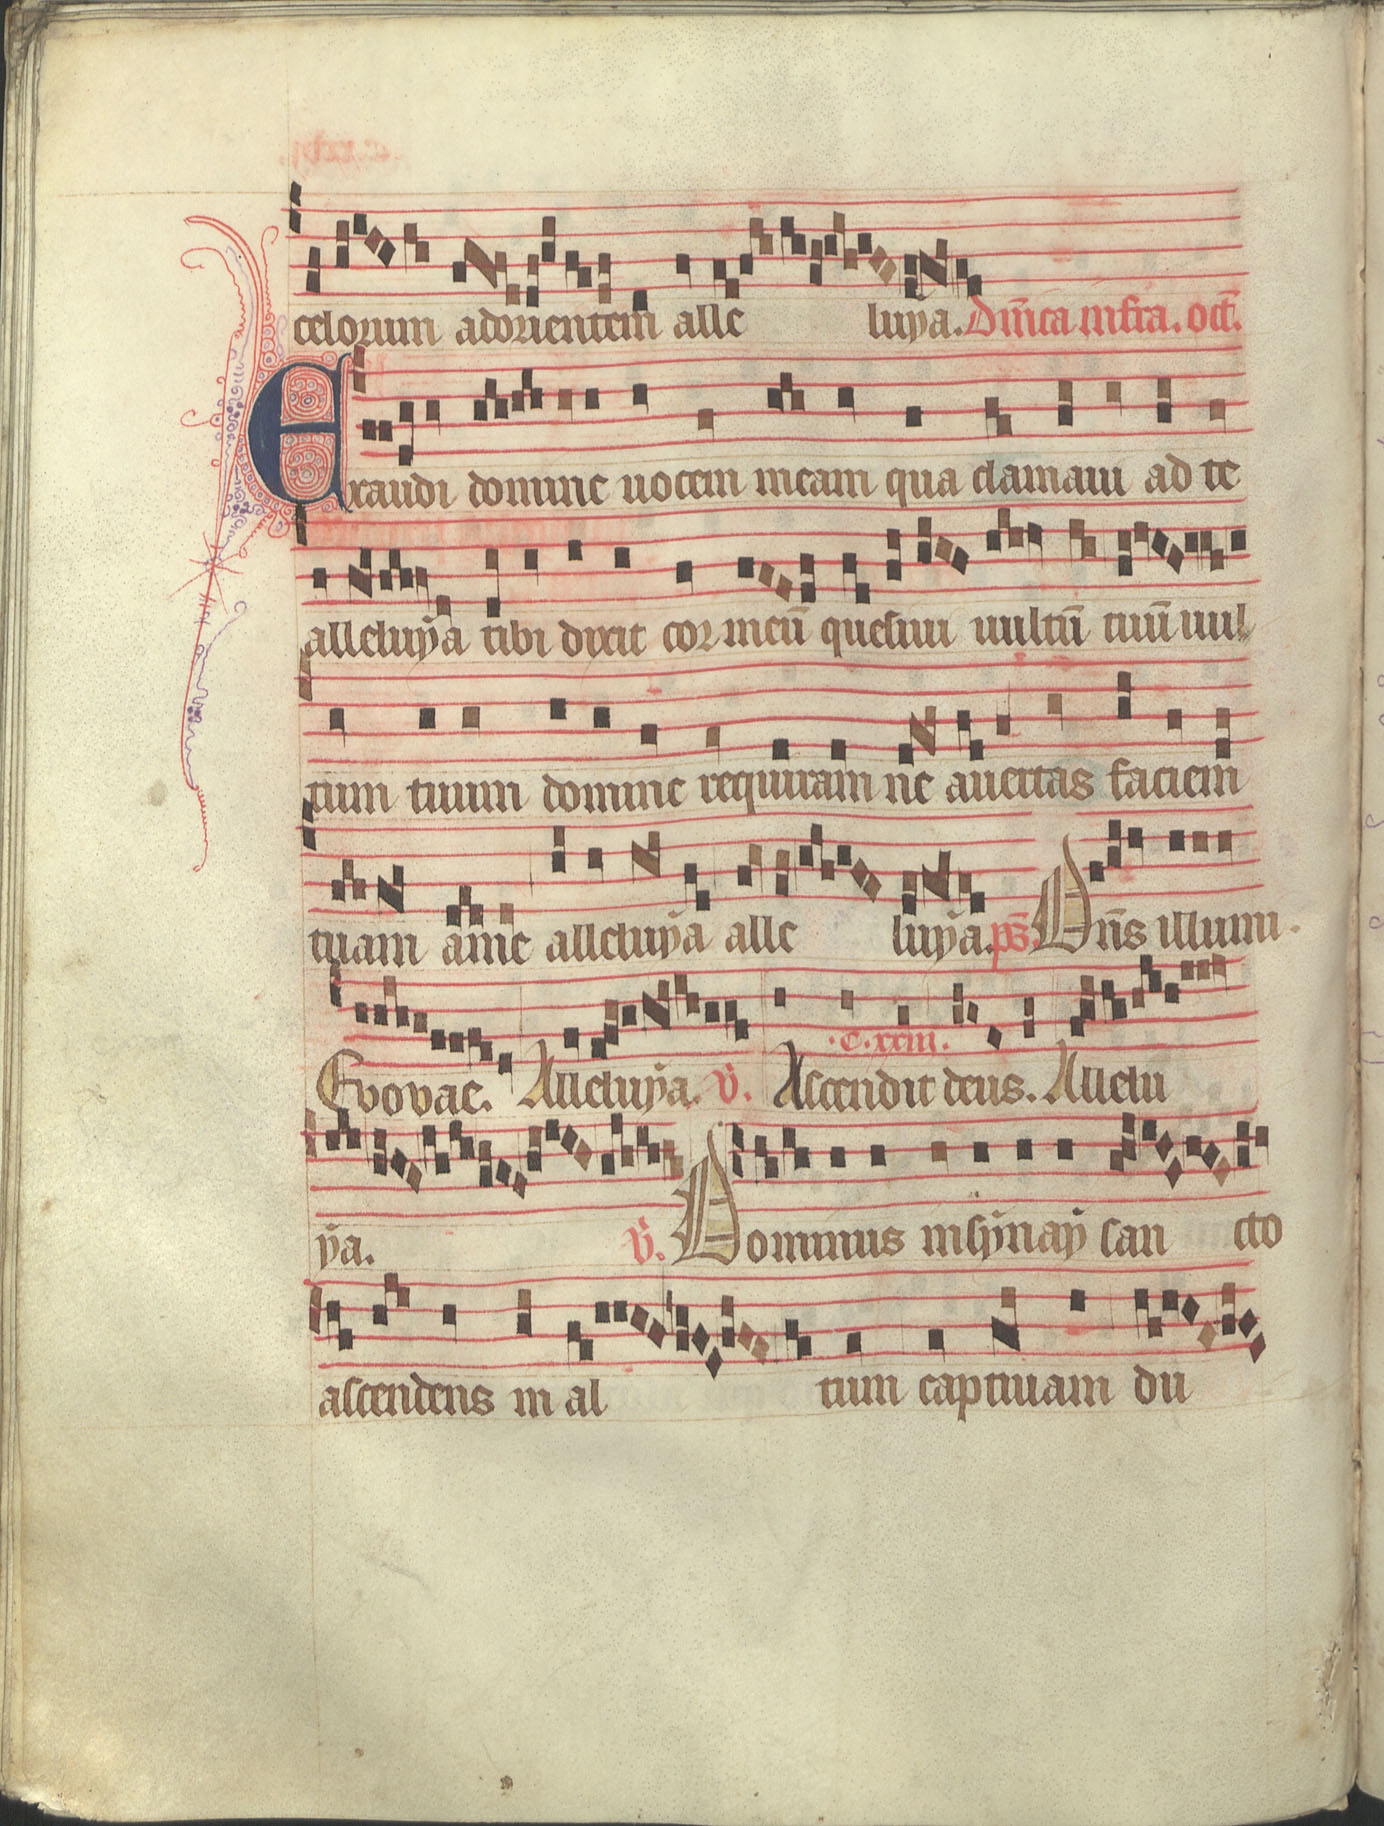 celorum adorientem alle luya. Dn̄ica infra. oct̄.
Exaudi domine uocem meam qua clamaui ad te
alleluẏa tibi dixit cor meū quesiui uultū tuū uul
tum tuum domine requiram ne auertas faciem
tuam ame alleluẏa alle luẏa. ps̄. Dn̄s illumi.
Evovae. Alleluẏa. v̄. Ascendit deus. Allelu
.c.xxiii.
ẏa. v̄. Dominus insẏnaẏ san cto
ascendens in al tum captiuam du